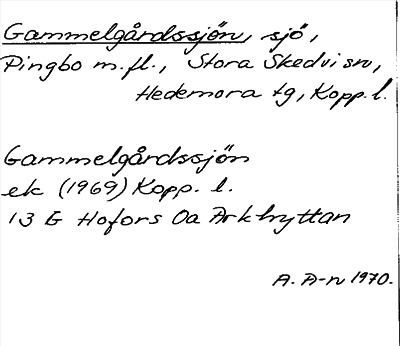 Gammelgårdssjön, sjö,
Pingbo m.fl., Stora Skedvi sn,
Hedemora tg, Kopp. l.
Gammelgårdssjön
ek (1969) Kopp. l.
13 G Hofors Oa Arkhyttan
A. A-n 1970.